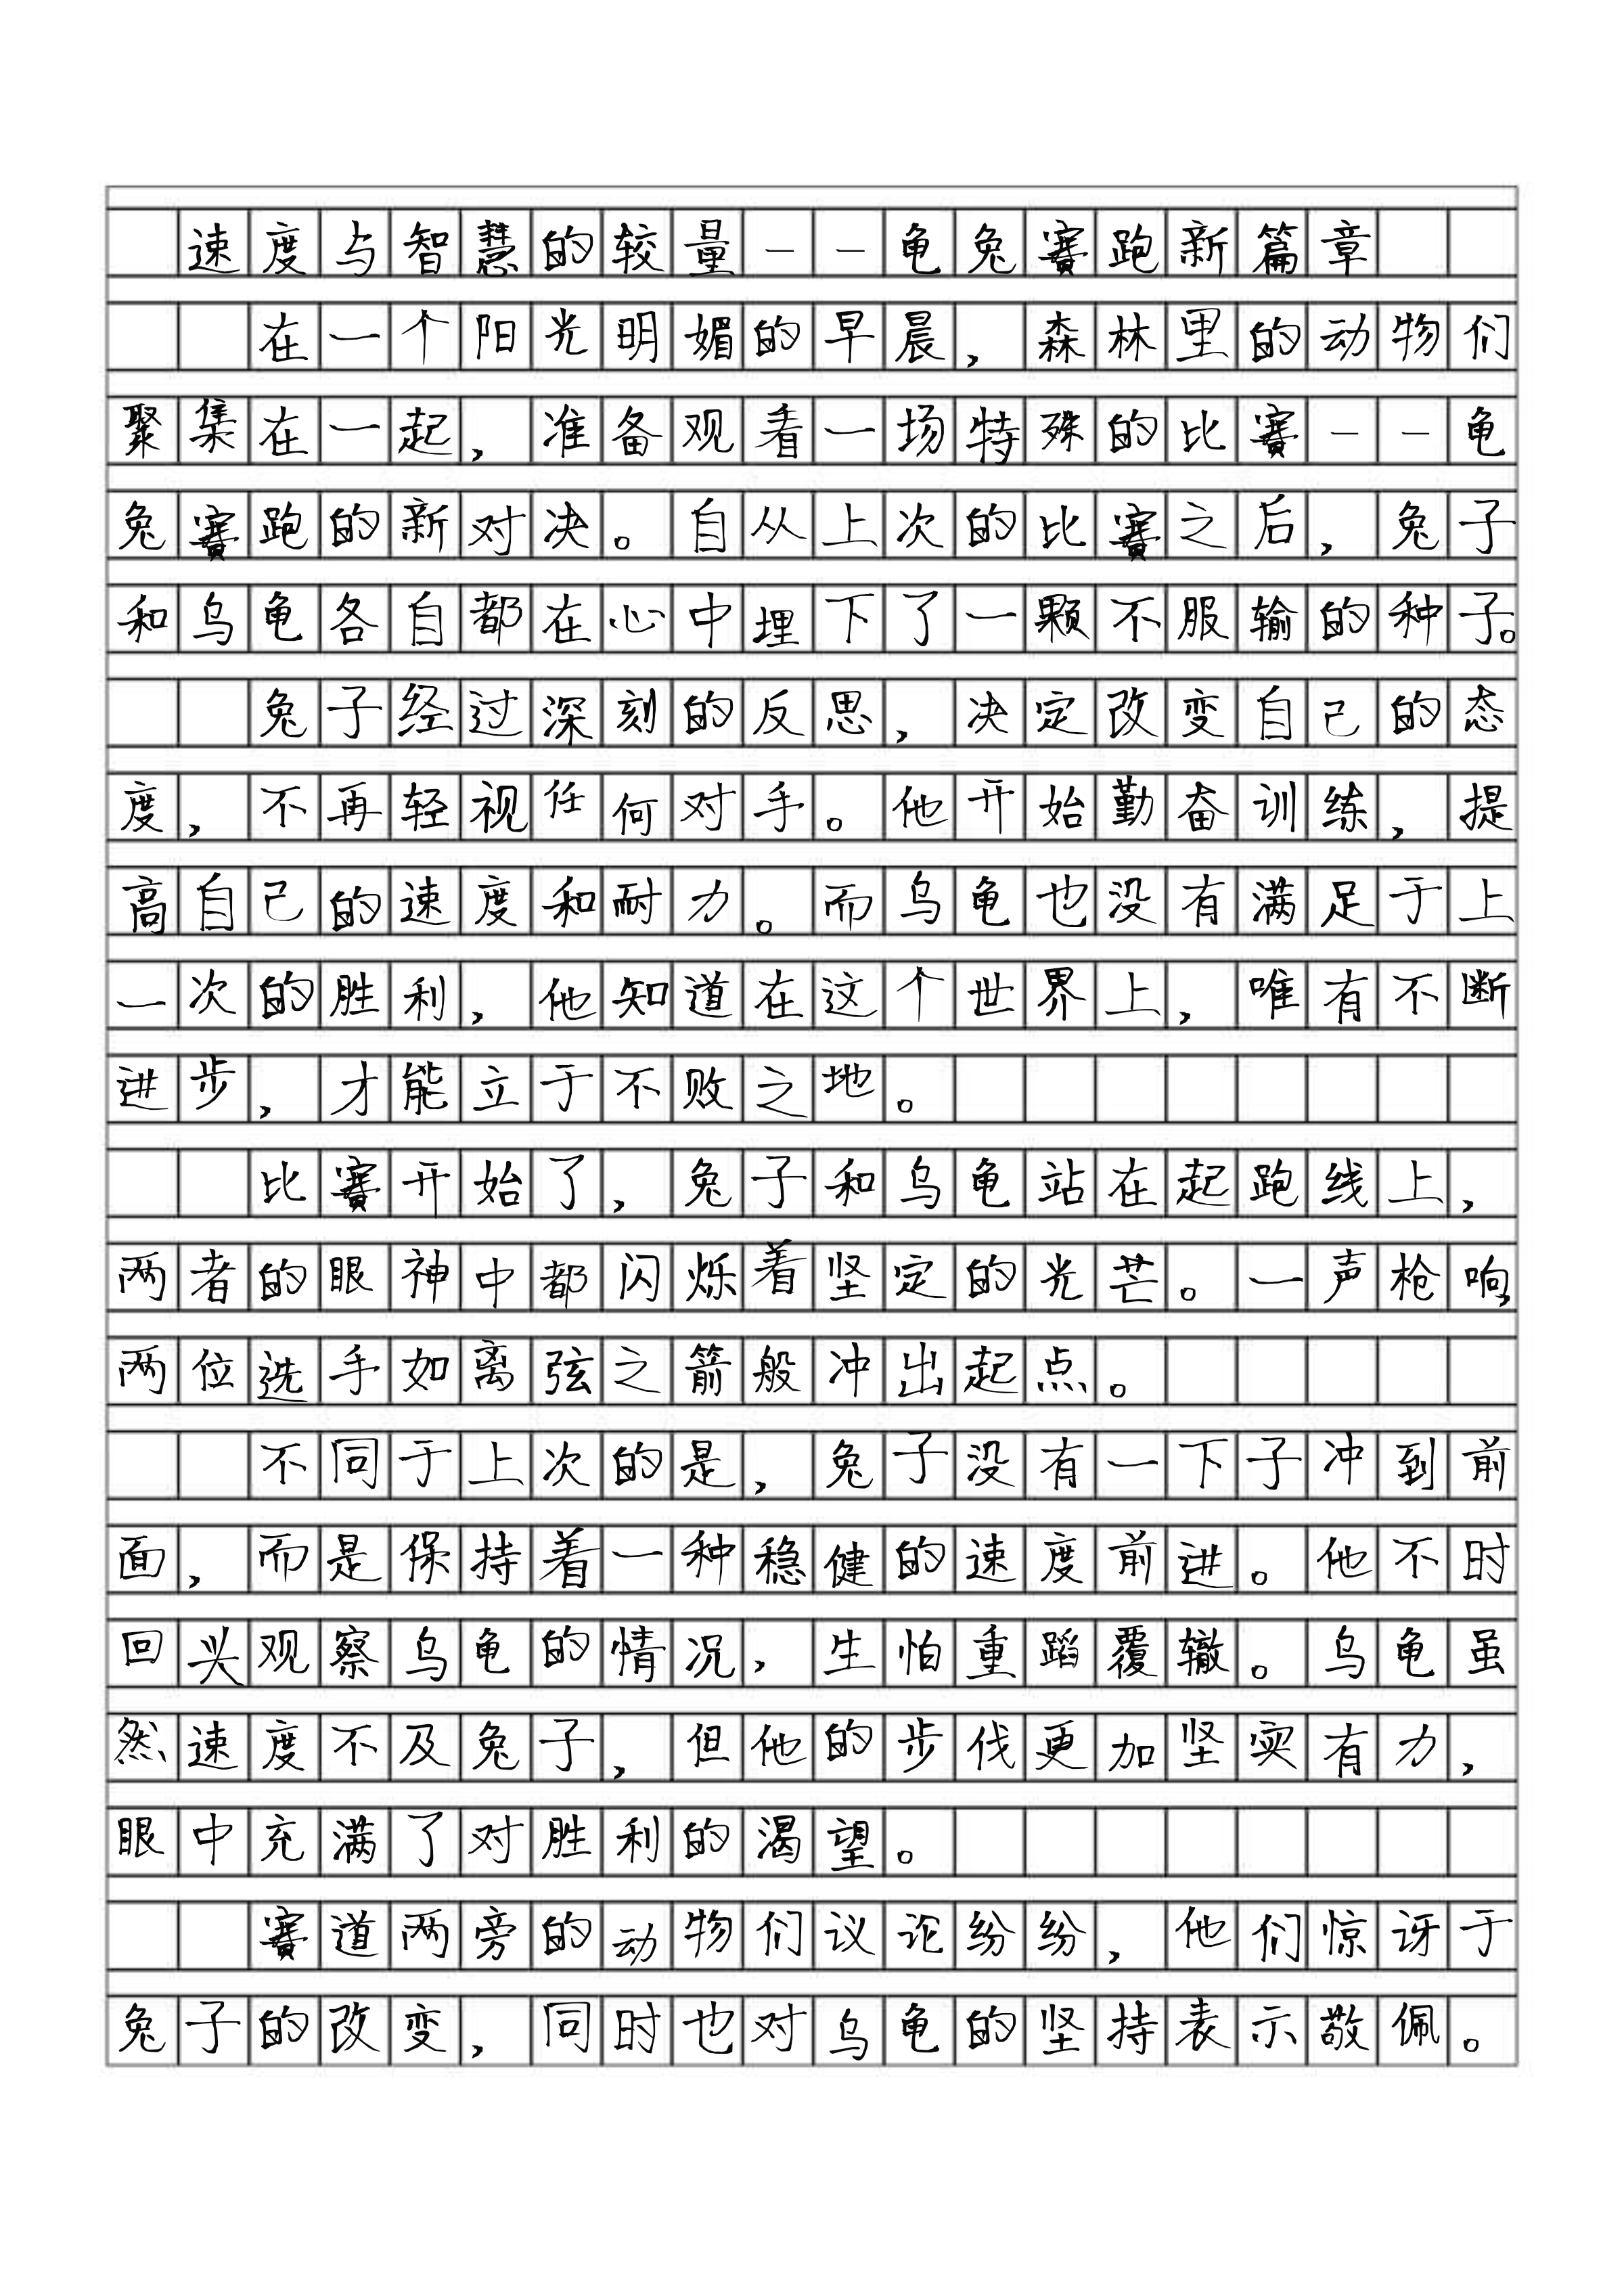 速度与智慧的较量——龟兔赛跑新篇章
在一个阳光明媚的早晨，森林里的动物们
聚集在一起，准备观看一场特殊的比赛——龟
兔赛跑的新对决。自从上次的比赛之后，兔子
和乌龟各自都在心中埋下了一颗不服输的种子。
兔子经过深刻的反思，决定改变自己的态
度，不再轻视任何对手。他开始勤奋训练，提
高自己的速度和耐力。而乌龟也没有满足于上
一次的胜利，他知道在这个世界上，唯有不断
进步，才能立于不败之地。
比赛开始了，兔子和乌龟站在起跑线上，
两者的眼神中都闪烁着坚定的光芒。一声枪响，
两位选手如离弦之箭般冲出起点。
不同于上次的是，兔子没有一下子冲到前
面，而是保持着一种稳健的速度前进。他不时
回头观察乌龟的情况，生怕重蹈覆辙。乌龟虽
然速度不及兔子，但他的步伐更加坚实有力，
眼中充满了对胜利的渴望。
赛道两旁的动物们议论纷纷，他们惊讶于
兔子的改变，同时也对乌龟的坚持表示敬佩。